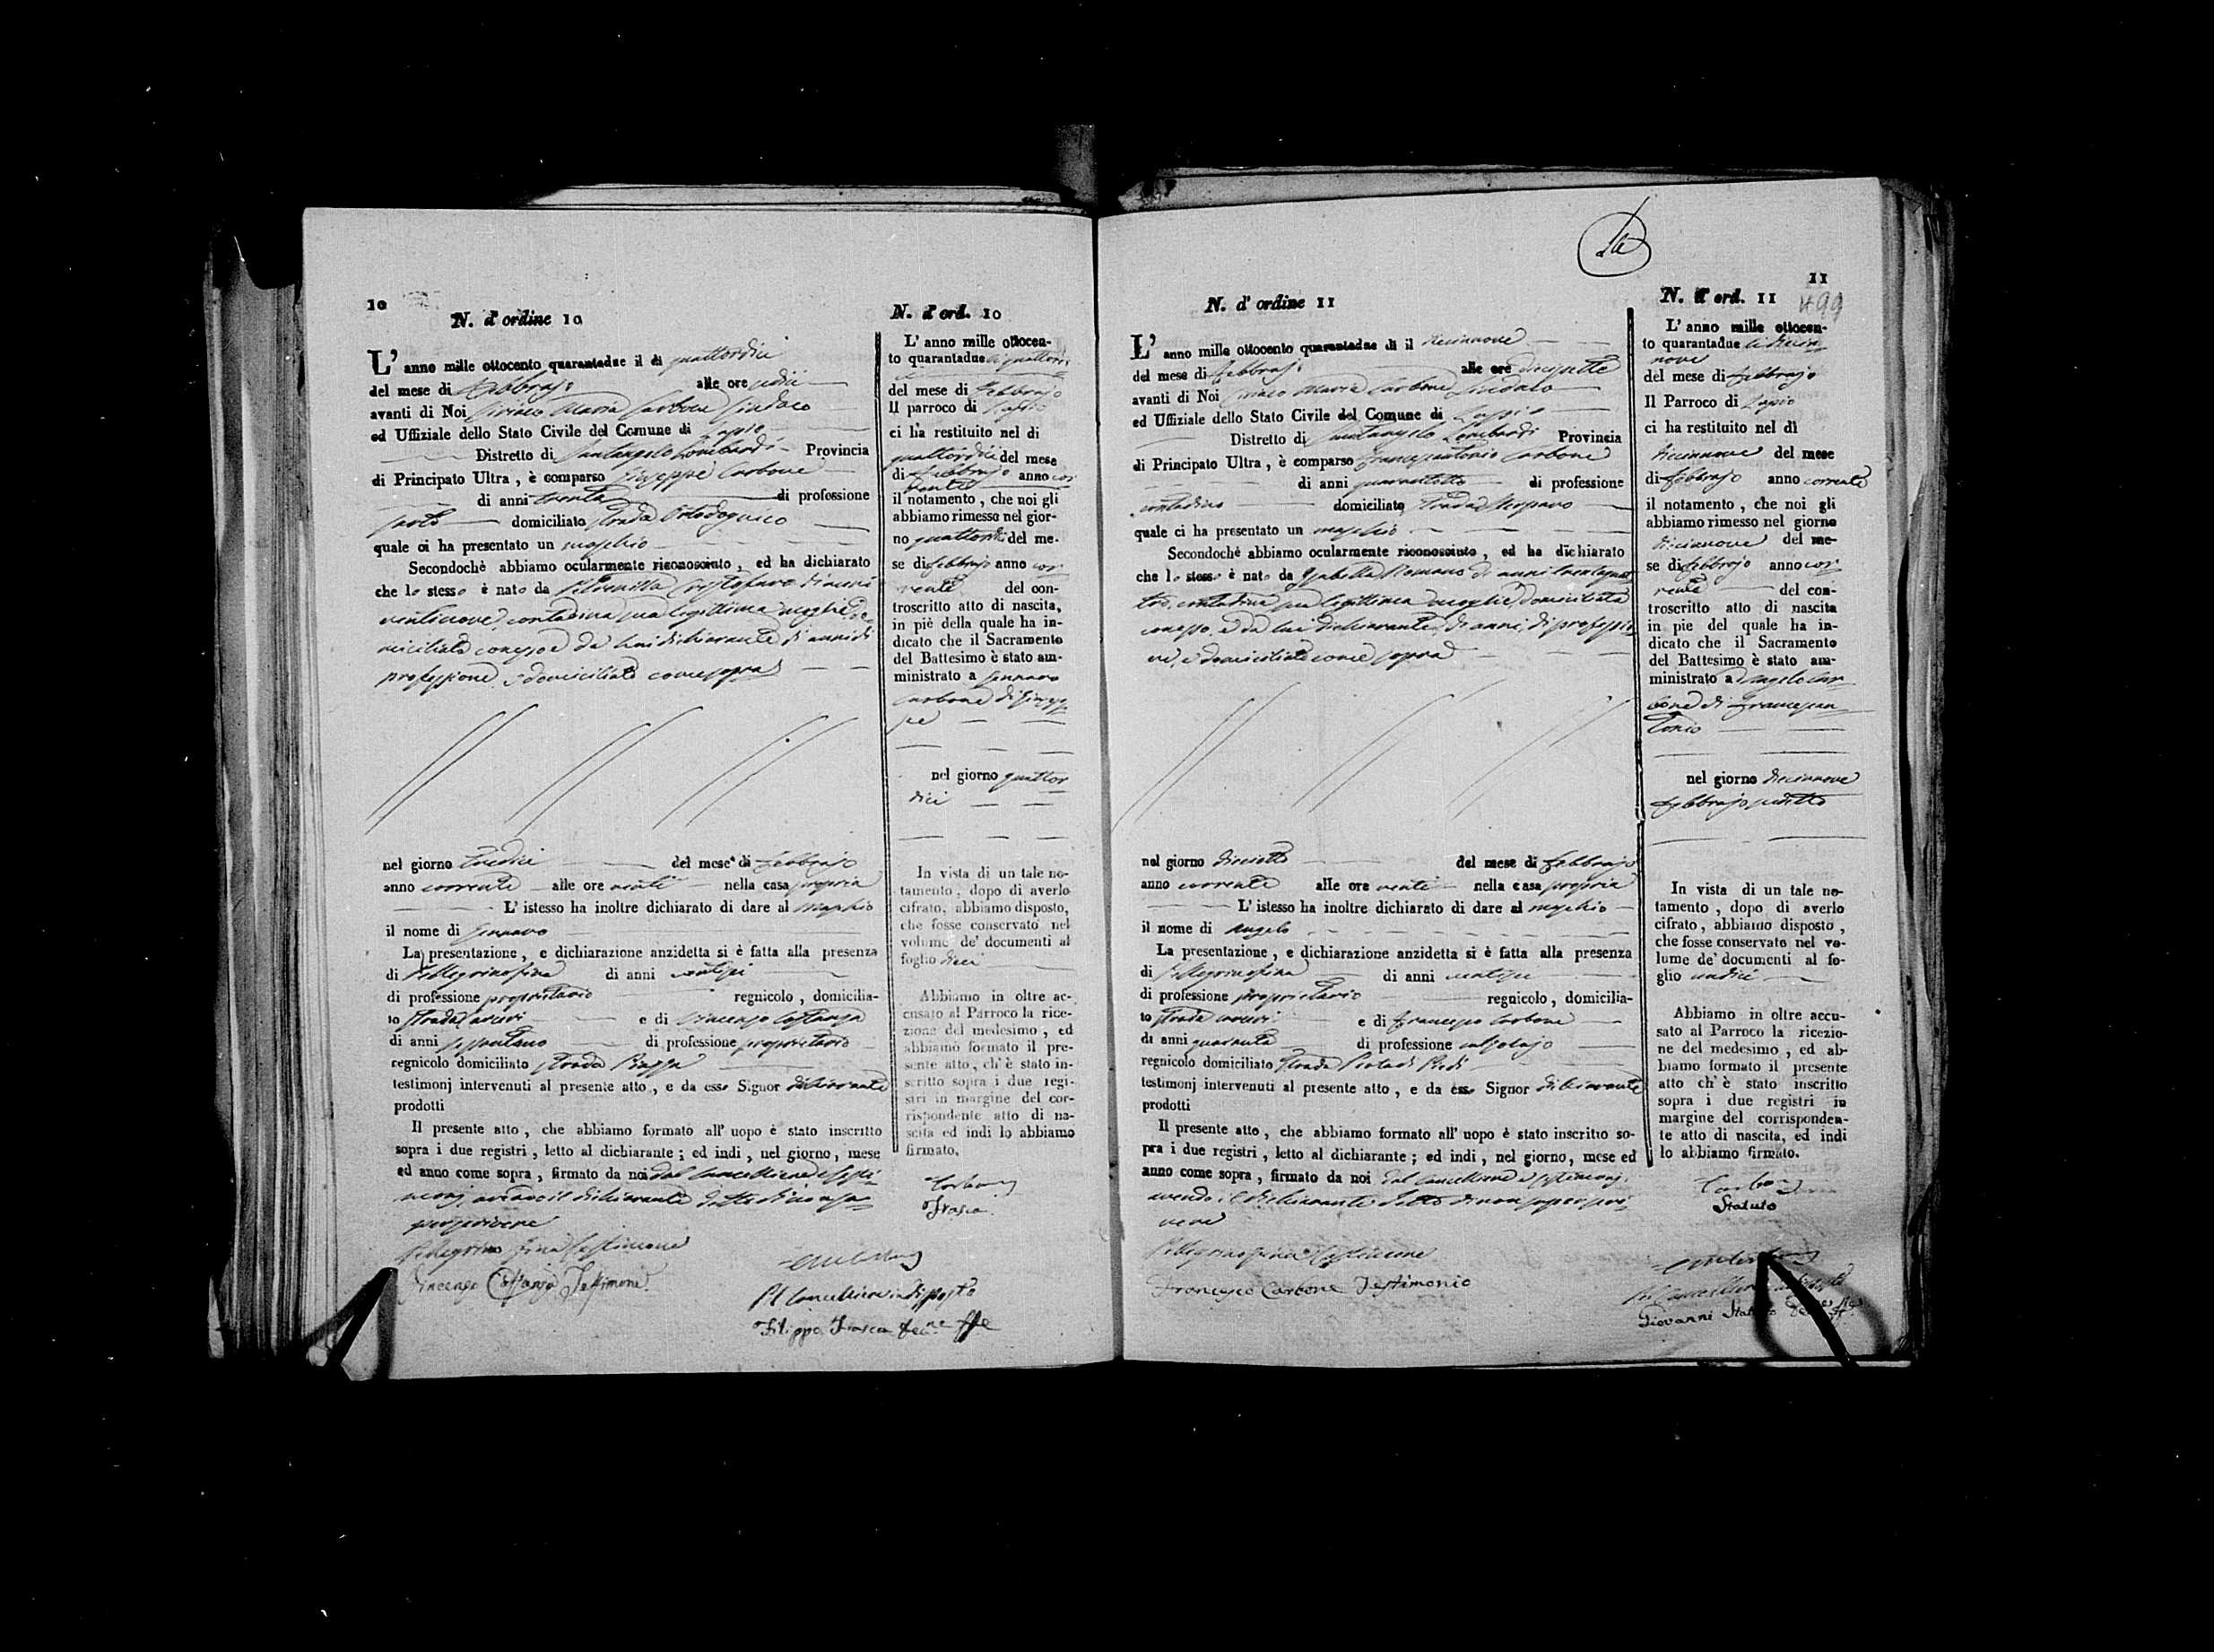 10
N. d' ordine 10
L' anno mille ottocento quarantadue il di quattordici
del mese di Febbrajo alle ore sedici
avanti di Noi Ciriaco Maria Carbone Sindaco
ed Uffiziale dello Stato Civile del Comune di Lapio
Distretto di Santangelo Lombardi Provincia
di Principato Ultra , è comparso Giuseppe Carbone
di anni trenta di professione
sarto domiciliato strada
quale ci ha presentato un maschio
Secondochè abbiamo ocularmente riconosciuto , ed ha dichiarato
che lo stesso è nato da Petronilla Cristofaro di anni
ventinove contadina sua legittima moglie do-
miciliata con esso e da lui dichiarante di anni di
professione, e domiciliato come sopra
nel giorno tredici del mese di Febbrajo
anno corrente alle ore venti nella casa propria
L' istesso ha inoltre dichiarato di dare al maschio
il nome di Gennaro
La presentazione , e dichiarazione anzidetta si è fatta alla presenza
di Pellegrino Fina di anni
di professione proprietario regnicolo , domicilia-
to strada e di Vincenzo Costanza
di anni di professione proprietario
regnicolo domiciliato strada Piazza
testimonj intervenuti al presente atto , e da esso Signor dichiarante
prodotti
Il presente atto , che abbiamo formato all' uopo è stato inscritto
sopra i due registri , letto al dichiarante ; ed indi , nel giorno , mese
ed anno come sopra , firmato da noi dal Cancelliere e testi-
monj, avendo il dichiarante detto di non sa-
per scrivere
Pellegrino Fina testimone
Vincenzo Costanza Testimone
Pel Cancelliere indisposto
Filippo Frasca
N. d' ord. 10
L' anno mille ottocen-
to quarantadue li quattordi-
del mese di Febbrajo
Il parroco di Lapio
ci ha restituito nel di
quattordici del mese
di Febbrajo anno cor-
rente
il notamento , che noi gli
abbiamo rimesso nel gior-
no quattordici del me-
se di Febbrajo anno cor-
rente del con-
troscritto atto di nascita,
in piè della quale ha in-
dicato che il Sacramento
del Battesimo è stato am-
ministrato a Gennaro
Carbone di Giusep-
pe
nel giorno quattor
dici
In vista di un tale no-
tamento , dopo di averlo
cifrato, abbiamo disposto,
che fosse conservato nel
volume de' documenti al
foglio dieci
Abbiamo in oltre ac-
cusato al Parroco la rice-
zione del medesimo , ed
abbiamo formato il pre-
sente atto , ch' è stato in-
scritto sopra i due regi-
stri in margine del cor-
rispondente atto di na-
scita ed indi lo abbiamo
firmato.
Carbone
Frasca
11
499
N. d' ordine 11
L' anno mille ottocento quarantadue di il diecinnove
del mese di Febbrajo alle ore diecisette
avanti di Noi Ciriaco Maria Carbone Sindaco
ed Uffiziale dello Stato Civile del Comune di Lapio
Distretto di Santangelo Lombardi Provincia
di Principato Ultra , è comparso Francescantonio Carbone
di anni quarantotto di professione
contadino domiciliato strada
quale ci ha presentato un maschio
Secondochè abbiamo ocularmente riconosciuto , ed ha dichiarato
che lo stesso è nato da Isabella Romano di anni trentaquat-
tro, contadina sua legittima moglie domiciliata
con esso, e da lui dichiarante, di anni, di professio-
ne, e domiciliato come sopra
nel giorno dieciotto del mese di Febbrajo
anno corrente alle ore venti nella casa propria
L' istesso ha inoltre dichiarato di dare al maschio
il nome di Angelo
La presentazione , e dichiarazione anzidetta si è fatta alla presenza
di Pellegrino Fina di anni
di professione proprietario regnicolo , domicilia-
to strada e di Francesco Carbone
di anni quaranta di professione calzolajo
regnicolo domiciliato strada
testimonj intervenuti al presente atto , e da esso Signor dichiarante
prodotti
Il presente atto , che abbiamo formato all' uopo è stato inscritto so-
pra i due registri , letto al dichiarante ; ed indi , nel giorno, mese ed
anno come sopra , firmato da noi dal Cancelliere e testimonj,
avendo il dichiarante detto di non saper scri-
vere
Pellegrino Fina testimone
Francesco Carbone Testimonio
Pel Cancelliere indisposto
Giovanni Statuto
N. d' ord. 11
L' anno mille ottocen-
to quarantadue li diecin-
nove
del mese di Febbrajo
Il Parroco di Lapio
ci ha restituito nel dì
diecinnove del mese
di Febbrajo anno corrente
il notamento , che noi gli
abbiamo rimesso nel giorno
diecinnove del me-
se di Febbrajo anno cor-
rente del con-
troscritto atto di nascita
in pie del quale ha in-
dicato che il Sacramento
del Battesimo è stato am-
ministrato a Angelo Car-
bone di Francescan-
tonio
nel giorno diecinnove
Febbrajo sudetto
In vista di un tale no-
tamento , dopo di averlo
cifrato , abbiamo disposto ,
che fosse conservato nel vo-
lume de' documenti al fo-
glio undici
Abbiamo in oltre accu-
sato al Parroco la ricezio-
ne del medesimo , ed ab-
biamo formato il presente
atto ch' è stato inscritto
sopra i due registri in
margine del corrisponden-
te atto di nascita, ed indi
lo abbiamo firmato.
Carbone
Statuto